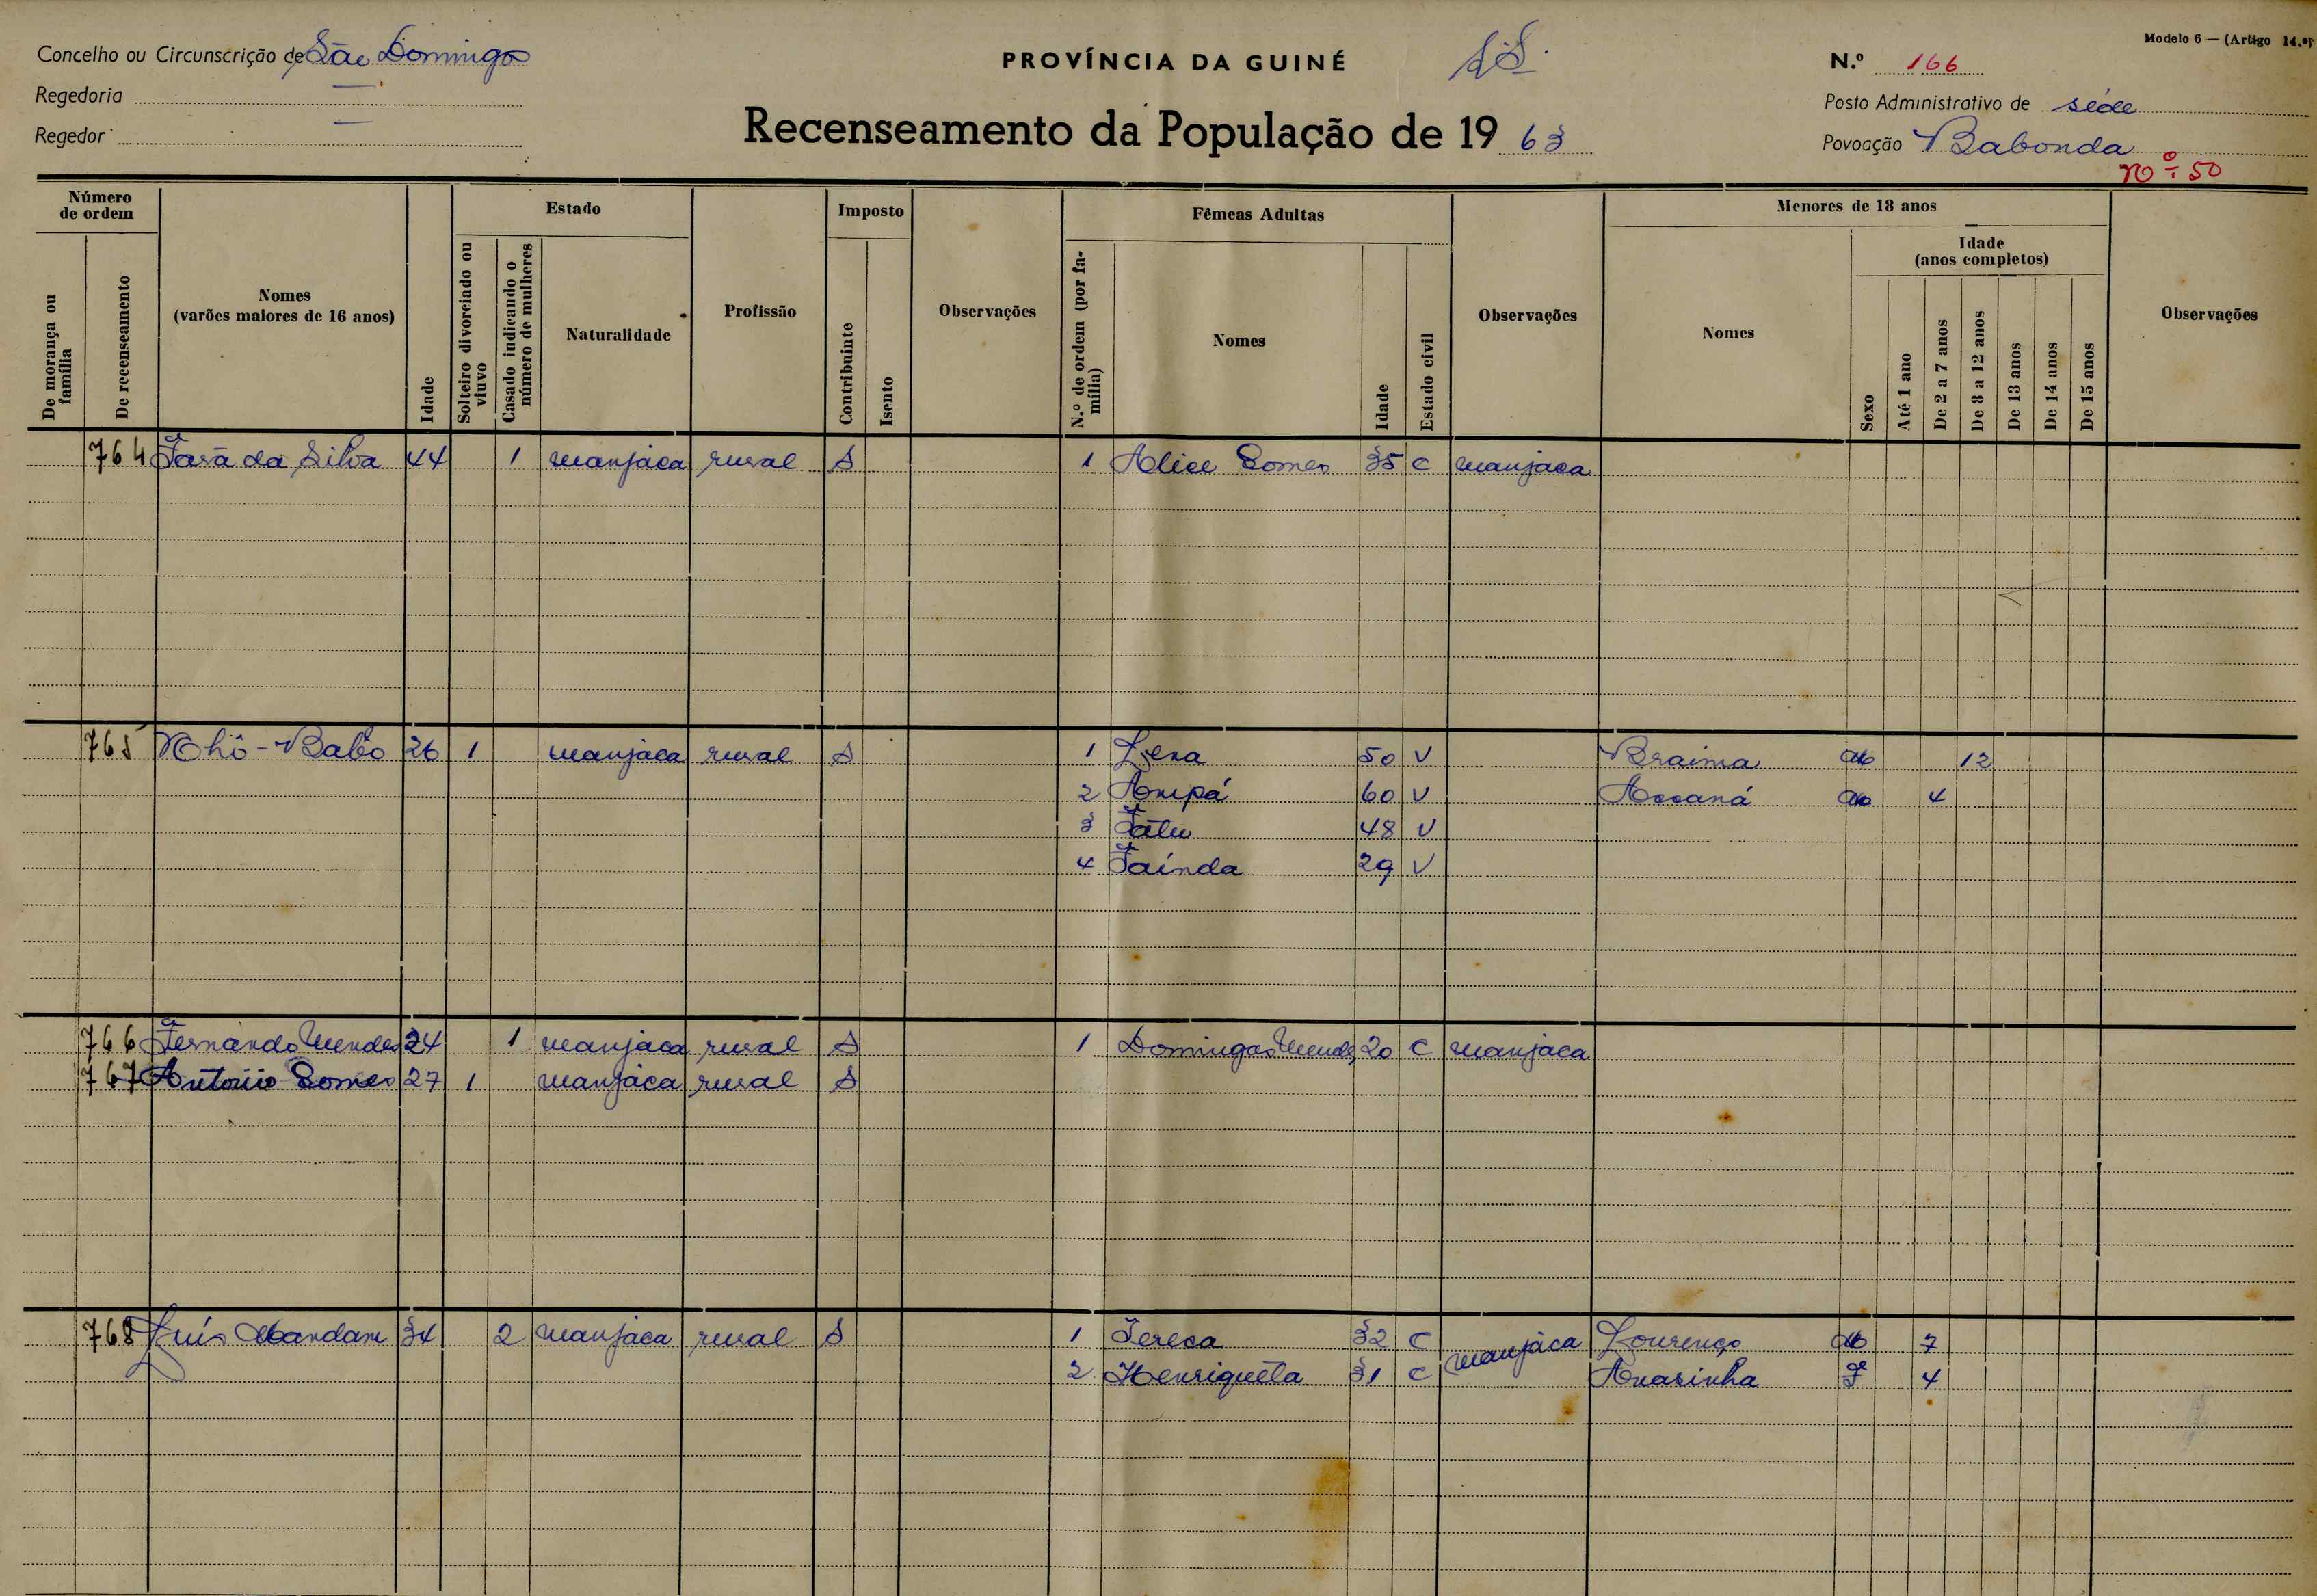 Modelo 6 — (Artigo 14.º)
Concelho ou Circunscrição de São Domingos
PROVÍNCIA DA GUINÉ
N.º 166
Regedoria —
Posto Administrativo de séde
Regedor —
Recenseamento da População de 1963
Povoação Babonda
Nº 50
Número de ordem
Estado
Imposto
Fêmeas Adultas
Menores de 18 anos
Idade (anos completos)
De morança ou família
De recenseamento
Nomes (varões maiores de 16 anos)
Idade
Solteiro divorciado ou viuvo
Casado indicando o número de mulheres
Naturalidade
Profissão
Contribuinte
Isento
Observações
N.º de ordem (por família)
Nomes
Idade
Estado civil
Observações
Nomes
Sexo
Até 1 ano
De 2 a 7 anos
De 8 a 12 anos
De 13 anos
De 14 anos
De 15 anos
Observações
764 da Silva 44 1 manjaca rural S 1 Alice Gomes 35 C manjaca
765 Nhô-Babo 26 1 manjaca rural S 1 50 V Braima M 12
2 Ampá 60 V Assaná M 4
3 Fatu 48 V
4 Faínda 29 V
766 Fernando Mendes 24 1 manjaca rural S 1 Domingas Mendes 20 C manjaca
767 Antonio Gomes 27 1 manjaca rural S
768 Luís Mandam 34 2 manjaca rural S 1 Tereca 32 C manjaca Lourenço M 7
2 Henriquêta 31 C Anasinha F 4